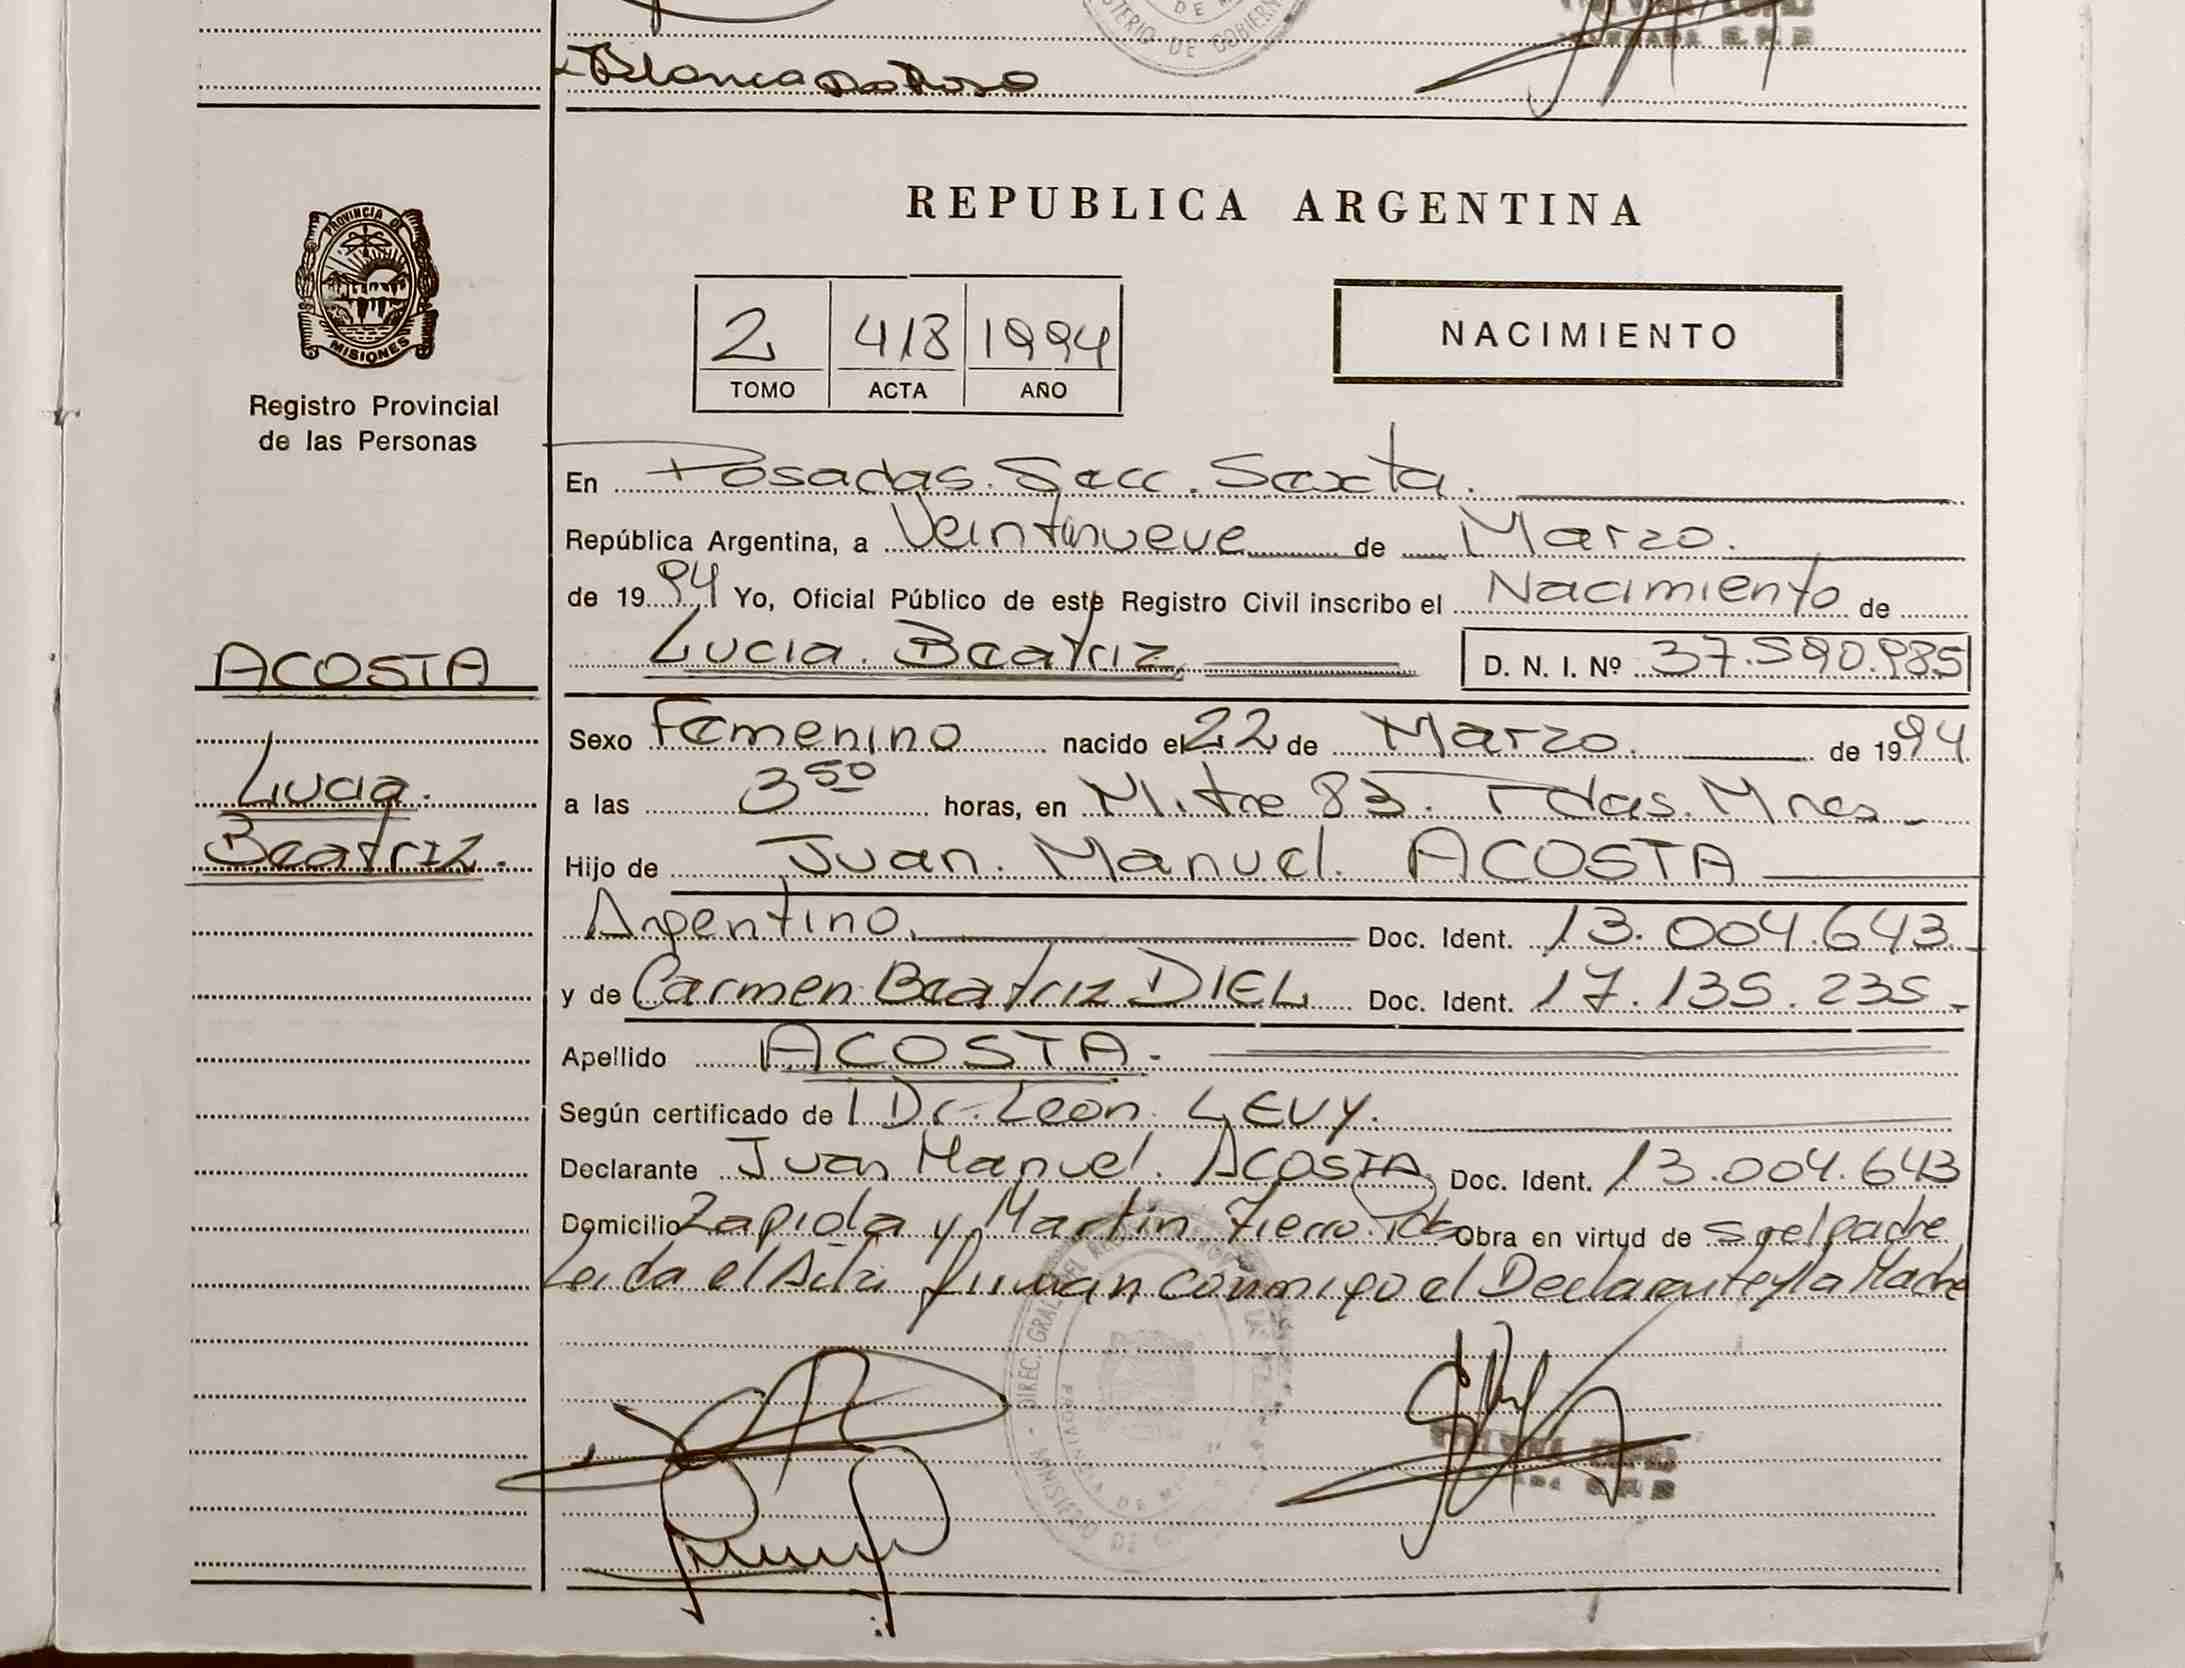 Blanca
PROVINCIA DE
MISIONES
Registro Provincial
de las Personas
REPUBLICA ARGENTINA
2 418 1994
TOMO ACTA AÑO
NACIMIENTO
En Posadas. Secc. Sexta.
República Argentina, a Veintinueve de Marzo.
de 1994 Yo, Oficial Público de este Registro Civil inscribo el Nacimiento de
Lucia. Beatriz, D. N. I. Nº 37.590.985
ACOSTA
Lucia.
Beatriz.
Sexo Femenino nacido el 22 de Marzo. de 1994.
a las 3 50 horas, en Mitre 83. Pdas. Mnes
Hijo de Juan. Manuel. ACOSTA
Argentino. Doc. Ident. 13.004.643
y de Carmen Beatriz DIEL Doc. Ident. 17.135.235
Apellido ACOSTA.
Según certificado de l Dr. Leon. LEVY.
Declarante Juan Manuel. ACOSTA Doc. Ident. 13.004.643
Domicilio Zapiola y Martin Fierro. Pdas Obra en virtud de s er el padre
Leida el Acta firman conmigo el Declarante y la Madre